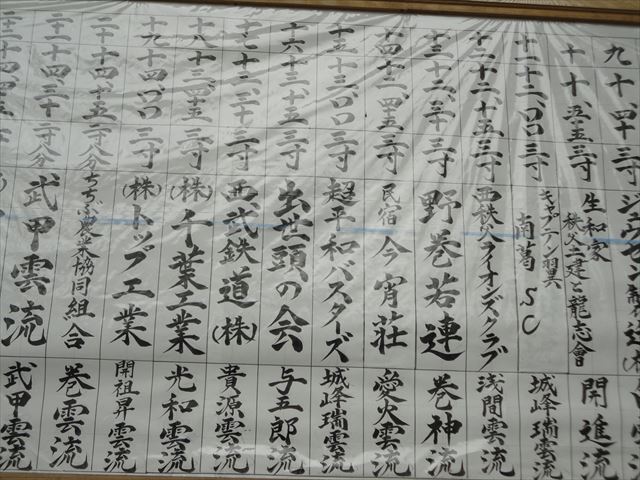 九 十、四十 三寸
十 十、五五 三寸 生和家 秩父土建と龍志會 開進流
十一 十二、〇〇 三寸 キャプテン翼 南葛SC 城峰瑞雲流
十二 十二、十五 三寸 西秩父ライオンズクラブ 浅間雲流
十三 十二、三十 三寸 野巻若連 巻神流
十四 十二、四五 三寸 民宿 今宵荘 愛火雲流
十五 十三、〇〇 三寸 超平和バスターズ 城峰瑞雲流
十六 十三、十五 三寸 出世頭の会 与五郎流
十七 十三、三十 三寸 西武鉄道(株) 貴源雲流
十八 十三、四五 三寸 (株)千葉工業 光和雲流
十九 十四、〇〇 三寸 (株)トップ工業 開祖昇雲流
二十 十四、十五 二寸八分 ちちぶ農業協同組合 巻雲流
二十一 十四、三十 二寸八分 武甲雲流 武甲雲流
十四、四五